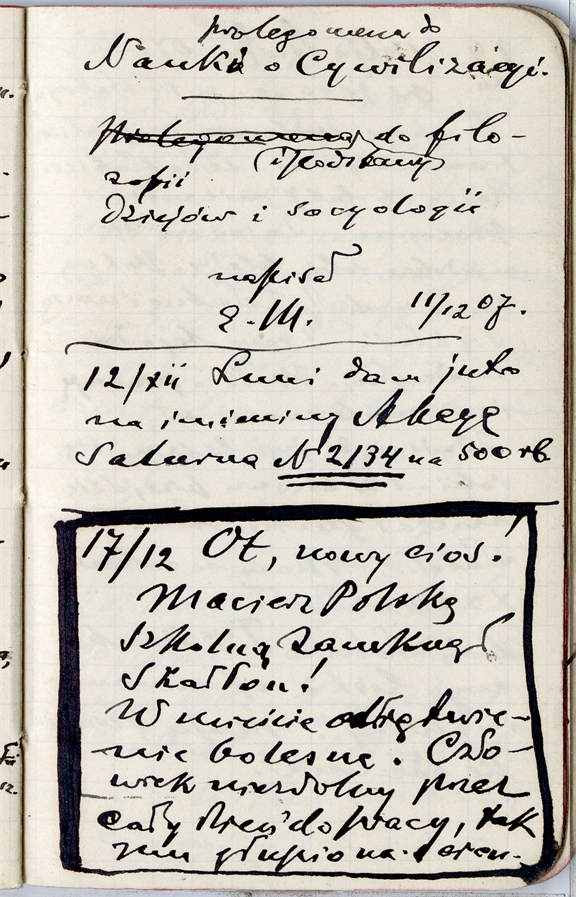 prolegomena do
Nauki o Cywilizacyi.
Prolegomena do filo-
(i Podstawy)
zofii
dziejów i socyologii
napisał
E. M. 11/12 07.
12/XII Luni dam jutro
na imieniny Akcyę
Saturna N 2134 na 500 rb
17/12 Ot, nowy cios!
Macierz Polską
Szkolną zamknął
Skałłon!
W mieście odrętwie-
nie bolesne. Czło-
wiek niezdolny przez
cały dzień do pracy, tak
mu głupio na